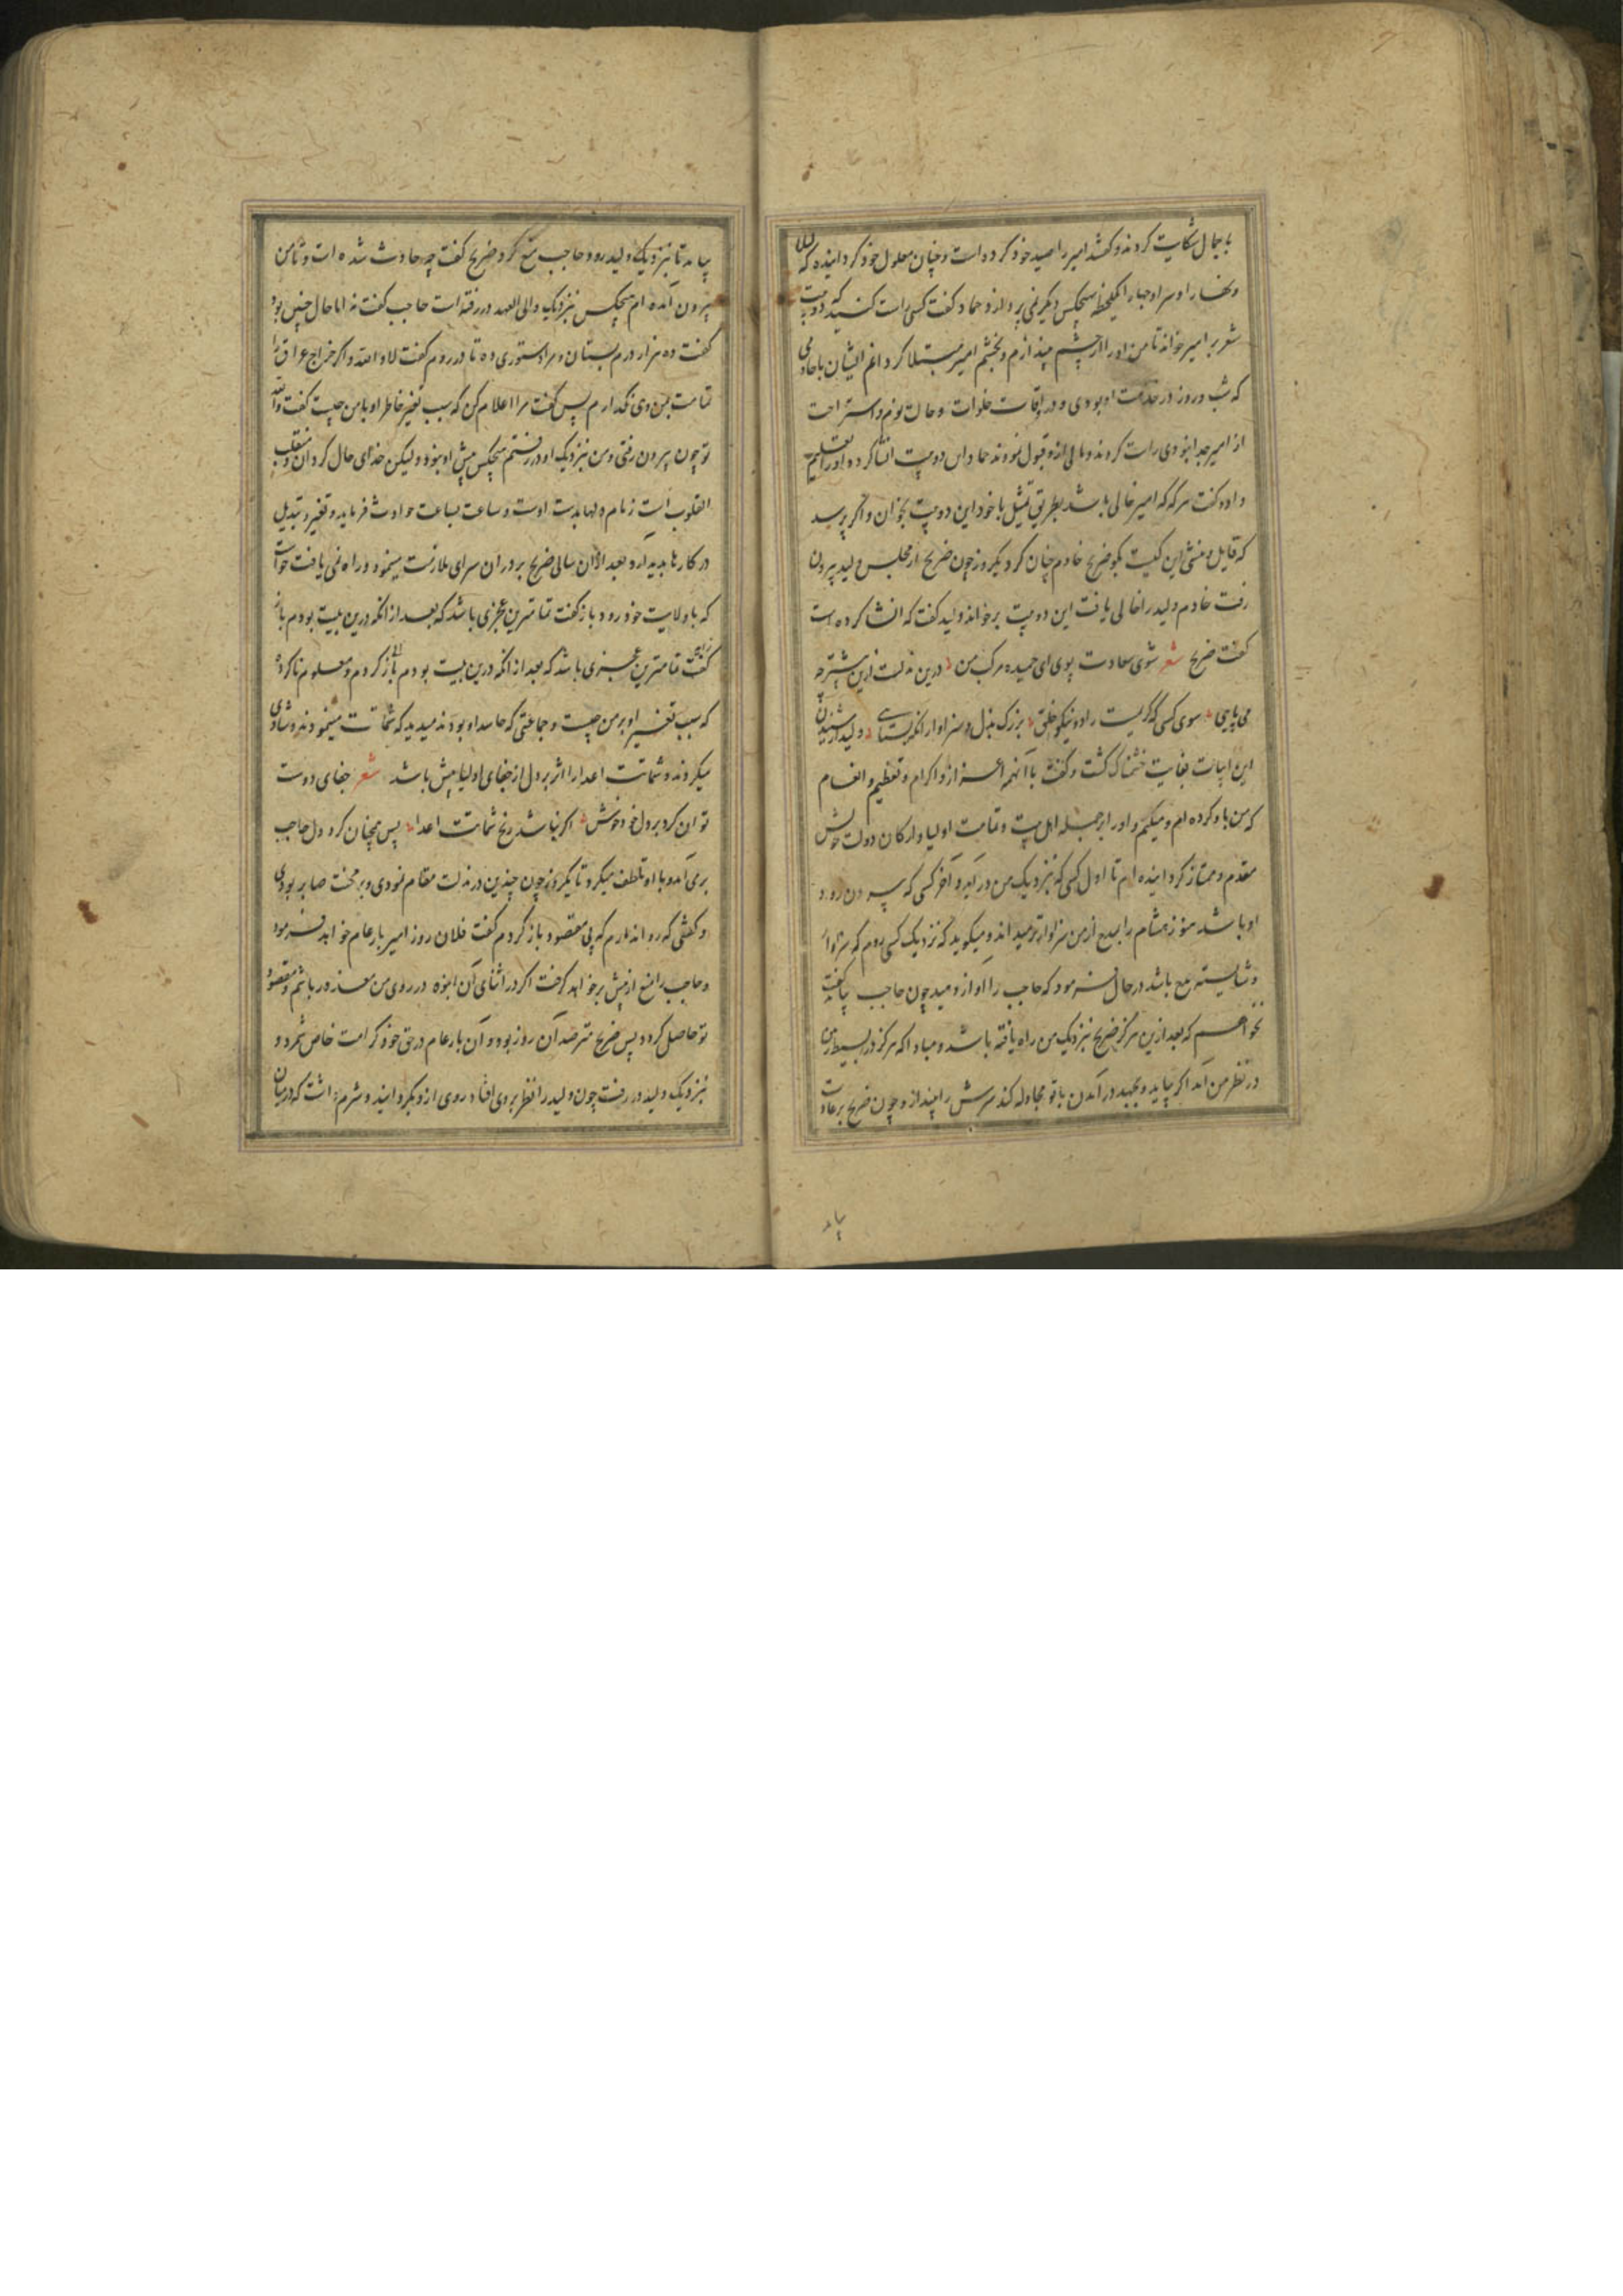 بیمال شکایت کردند و گفتند امیر را صید خود کرده است و چنان معلول خود گردانیده که لیلا
و نهارا و سرا و جهارا یکلحظه بهیچکس دیگر نمی پردازد حماد گفت کسی راست کنید که دو بیت
شعر بر امیر خواند تا من او را از چشم بیندازم و بخشم امیر مبتلا گردانم ایشان با خادمی
که شب و روز در خدمت او بودی و در اوقات خلوات و حالت نوم و استراحت
از امیر جدا نبودی راست کردند و مالی ازو قبول نمودند حماد این دو بیت انشا کرده او را تعلیم
داده گفت هرگه که امیر خالی باشد بطریق تمثیل با خود این دو بیت بخوان و اگر پرسد
که قایل و منشی این کیست بگو ضریح خادم چنان کرد یکروز چون ضریح از مجلس ولید بیرون
رفت خادم ولید را خالی یافت این دو بیت برخواند ولید گفت که انشا کرده است
گفت ضریح شعر شوی سعادت پوی ای حمیده مرکب من درین مذلت ازین بیشتر چه
می پایی سوی کسی که کریمست و راد و نیکو خلق بزرگ بذل و سزاوار انکه بستایی ولید از شنیدن
این ابیات بغایت خشمناک گشت و گفت با آنهمه اعزاز و اکرام و تعظیم و انعام
که من با او کرده ام و میکنم و او را از جمله اهل بیت و تمامت اولیا و ارکان دولت خویش
مقدم و ممتاز گردانیده ام تا اول کسی که نزدیک من در آید و آخر کسی که بیرون رود
او باشد هنوز هشام را بمدح از من سزاوارتر میداند و میگوید که نزدیک کسی روم که سزاوار
و شایسته مدح باشد در حال فرمود که حاجب را آواز دهید چون حاجب بیامد گفت
نخواهم که بعد ازین هرگز ضریح نزدیک من راه یافته باشد و مبادا که هرگز در بسیط زمین
در نظر من آید اگر بیاید و بجهد در آمدن با تو مجادله کند سرش را بینداز و چون ضریح بر عادت
بیامد
بیامد تا نزدیک ولید رود حاجب منع کرد ضریح گفت چه حادث شده است و تا من
بیرون آمده ام هیچکس نزدیک والی العهد در رفته است حاجب گفت نه اما حال چنین بود
گفت ده هزار درم بستان و مرا دستوری ده تا در روم گفت لا والله و اگر خراج عراق را
تمامت بمن دهی نگذارم پس گفت مرا اعلام کن که سبب تغیر خاطر او با من چیست گفت والله
تو چون بیرون رفتی و من نزدیک او در رفتم هیچکس پیش او نبود ولیکن خدای حال گردان و مقلب
القلوب است زمام دلها بدست اوست و ساعت بساعت حوادث فرماید و تغیر و تبدیل
در کارها پدید آرد بعد از آن سالی ضریح بر در آن سرای ملازمت مینمود و راه نمی یافت خواست
که با ولایت خود رود باز گفت تمامترین عجزی باشد که بعد از انکه درین بیت بودم باز
گفت تمامترین عجزی باشد که بعد از انکه درین بیت بودم باز گردم و معلوم ناکرده
که سبب تغیر او بر من چیست و جماعتی که حاسد او بودند میدید که شماتت مینمودند و شادی
میکردند و شماتت اعدا را اثر بر دل از جفای اولیا بیش باشد شعر جفای دوست
توان کرد بر دل خود خوش اگر نباشد رنج شماتت اعدا پس همچنان گرد دل حاجب
بر می آمد و با او تلطف میکرد تا یکروز چون چندین در مذلت مقام نمودی و بر محنت صابر بودی
و گفتی که روا ندارم که بی مقصود باز گردم گفت فلان روز امیر بار عام خواهد فرمود
و حاجب را منع از پیش برخواهد گرفت اگر در اثنای آن انبوه در روی من معذور باشم و مقصود
تو حاصل گردد پس ضریح مترصد آن روز بود و آن بار عام در حق خود کرامت خاص شمرد و
نزدیک ولید در رفت چون ولید را نظر بر وی افتاد روی ازو بگردانید و شرم داشت که در میان